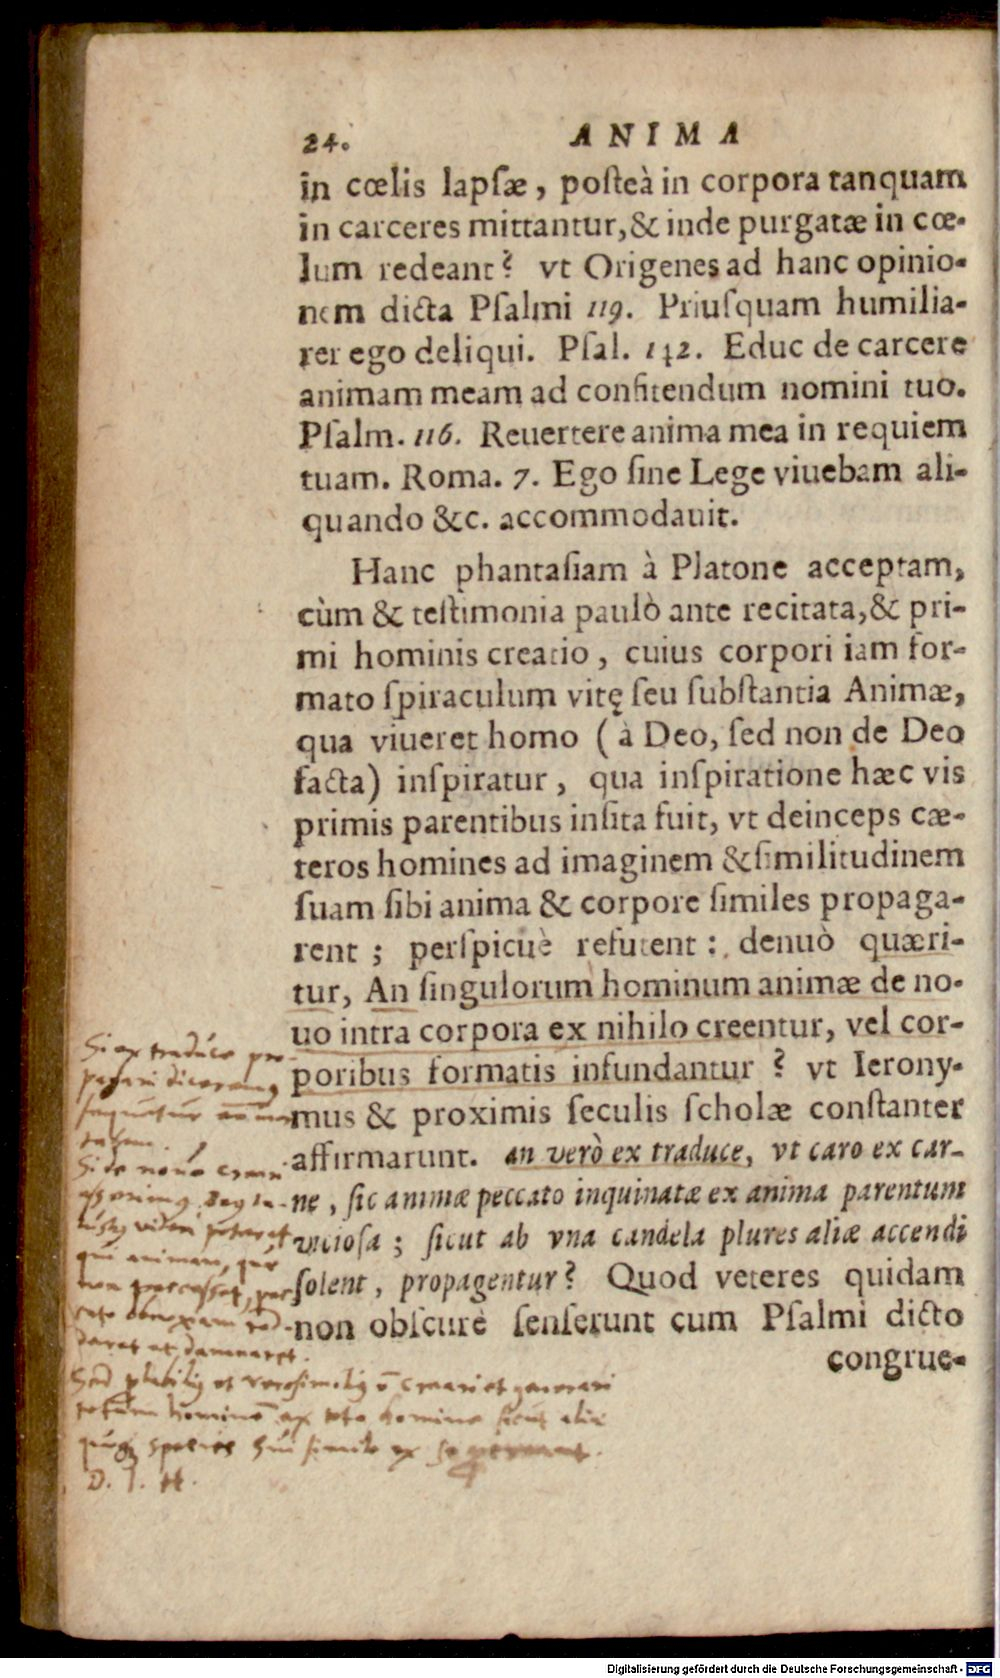 24. ANIMA
in cœlis lapſæ, poſteà in corpora tanquam
in carceres mittantur, & inde purgatæ in cœ-
lum redeant? vt Origenes ad hanc opinio-
nem dicta Pſalmi 119. Priuſquam humilia-
rer ego deliqui. Pſal. 142. Educ de carcere
animam meam ad confitendum nomini tuo.
Pſalm. 116. Reuertere anima mea in requiem
tuam. Roma. 7. Ego ſine Lege viuebam ali-
quando &c. accommodauit.
Hanc phantaſiam à Platone acceptam,
cùm & teſtimonia paulò ante recitata, & pri-
mi hominis creatio, cuius corpori iam for-
mato ſpiraculum vitę ſeu ſubſtantia Animæ,
qua viueret homo (à Deo, ſed non de Deo
facta) inſpiratur, qua inſpiratione hæc vis
primis parentibus inſita fuit, vt deinceps cæ-
teros homines ad imaginem & ſimilitudinem
ſuam ſibi anima & corpore ſimiles propaga-
rent; perſpicuè refutent: denuò quæri-
tur, An ſingulorum hominum animæ de no-
uo intra corpora ex nihilo creentur, vel cor-
poribus formatis infundantur? vt Ierony-
mus & proximis ſeculis ſcholæ conſtanter
affirmarunt. an verò ex traduce, vt caro ex car-
ne, ſic animæ peccato inquinatæ ex anima parentum
vicioſa; ſicut ab vna candela plures aliæ accendi
ſolent, propagentur? Quod veteres quidam
non obſcurè ſenſerunt cum Pſalmi dicto
congrue-
Si ex traduce pro-
pagari
ſequetur
Si de nouo
videri
qui animam,
non peccaſſet,
damnaret.
Sed
totum ex toto homine ſicut
ſpecies ſui ſimile ex ſe
D. I. H.
Digitalisierung gefördert durch die Deutsche Forschungsgemeinschaft - DFG